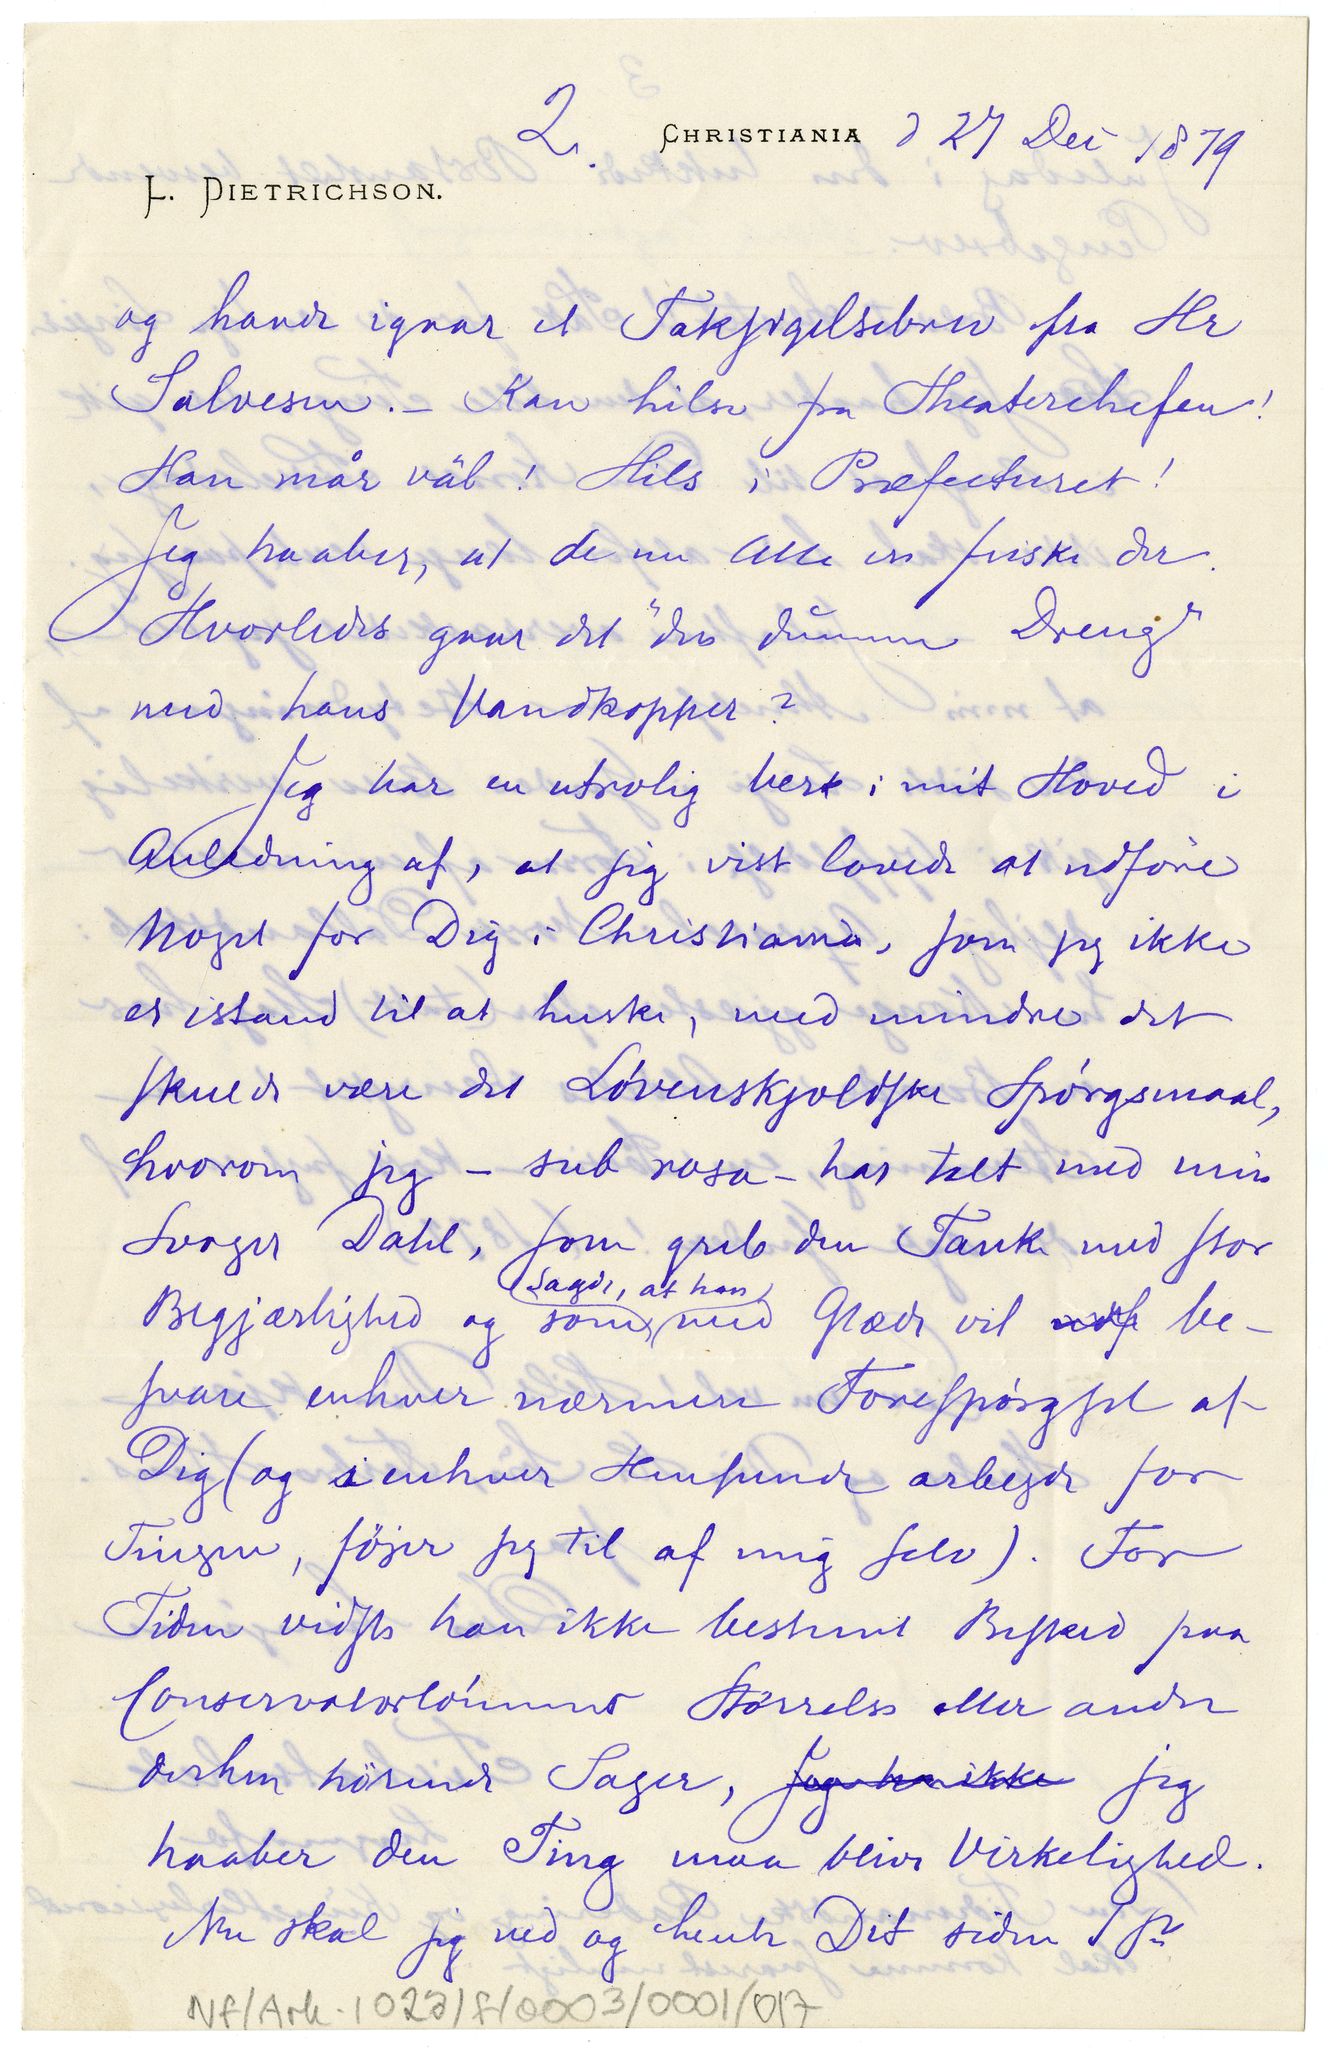 2. CHRISTIANIA d 27 Dec 1879
L. DIETRICHSON.
og havde igaar et Taksigelsebrev fra Hr
Salvesen. – Kan hilse fra Theaterchefen!
Han mår väl! Hils i Præfecturet!
Jeg haaber, at de nu Alle ere friske der.
Hvorledes gaar det "den dumme Dreng"
med hans Vandkopper?
Jeg har en utrolig verk i mit Hoved i
Anledning af, at jeg vist lovede at udføre
Noget for Dig i Christiania, som jeg ikke
er istand til at huske, med mindre det
skulde være det Løvenskjoldske Spørgsmaal,
hvorom jeg – sub rosa – har talt med min
Svoger Dahl, som greb den Tanke med stor
sagde, at han
Begjærlighed og som med Glæde vil be-
svare enhver nærmere Forespørgsel af
Dig (og i enhver Henseende arbejde for
Tingen, föjer jeg til af mig selv). For
Tiden vidste han ikke bestemt Besked paa
Conservatorlönnens Störrelse eller andre
derhen hörende Sager, Jeg har ikke jeg
haaber den Ting maa blive Virkelighed.
Nu skal jeg ned og hente Dit siden 1ste
NF/Ark-1023/F/0003/0001/017